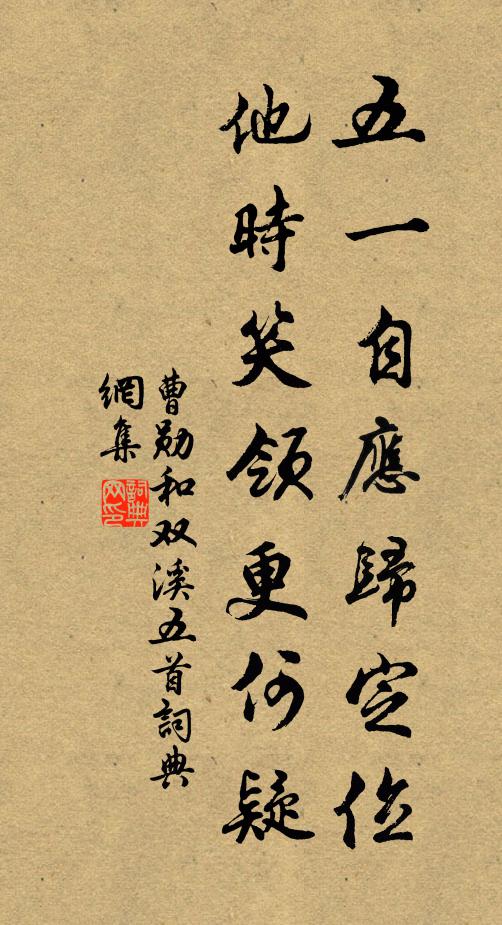 五一自應歸定位
他時笑領更何疑
曹勋和双溪五首詞典
網集
詞典
网印